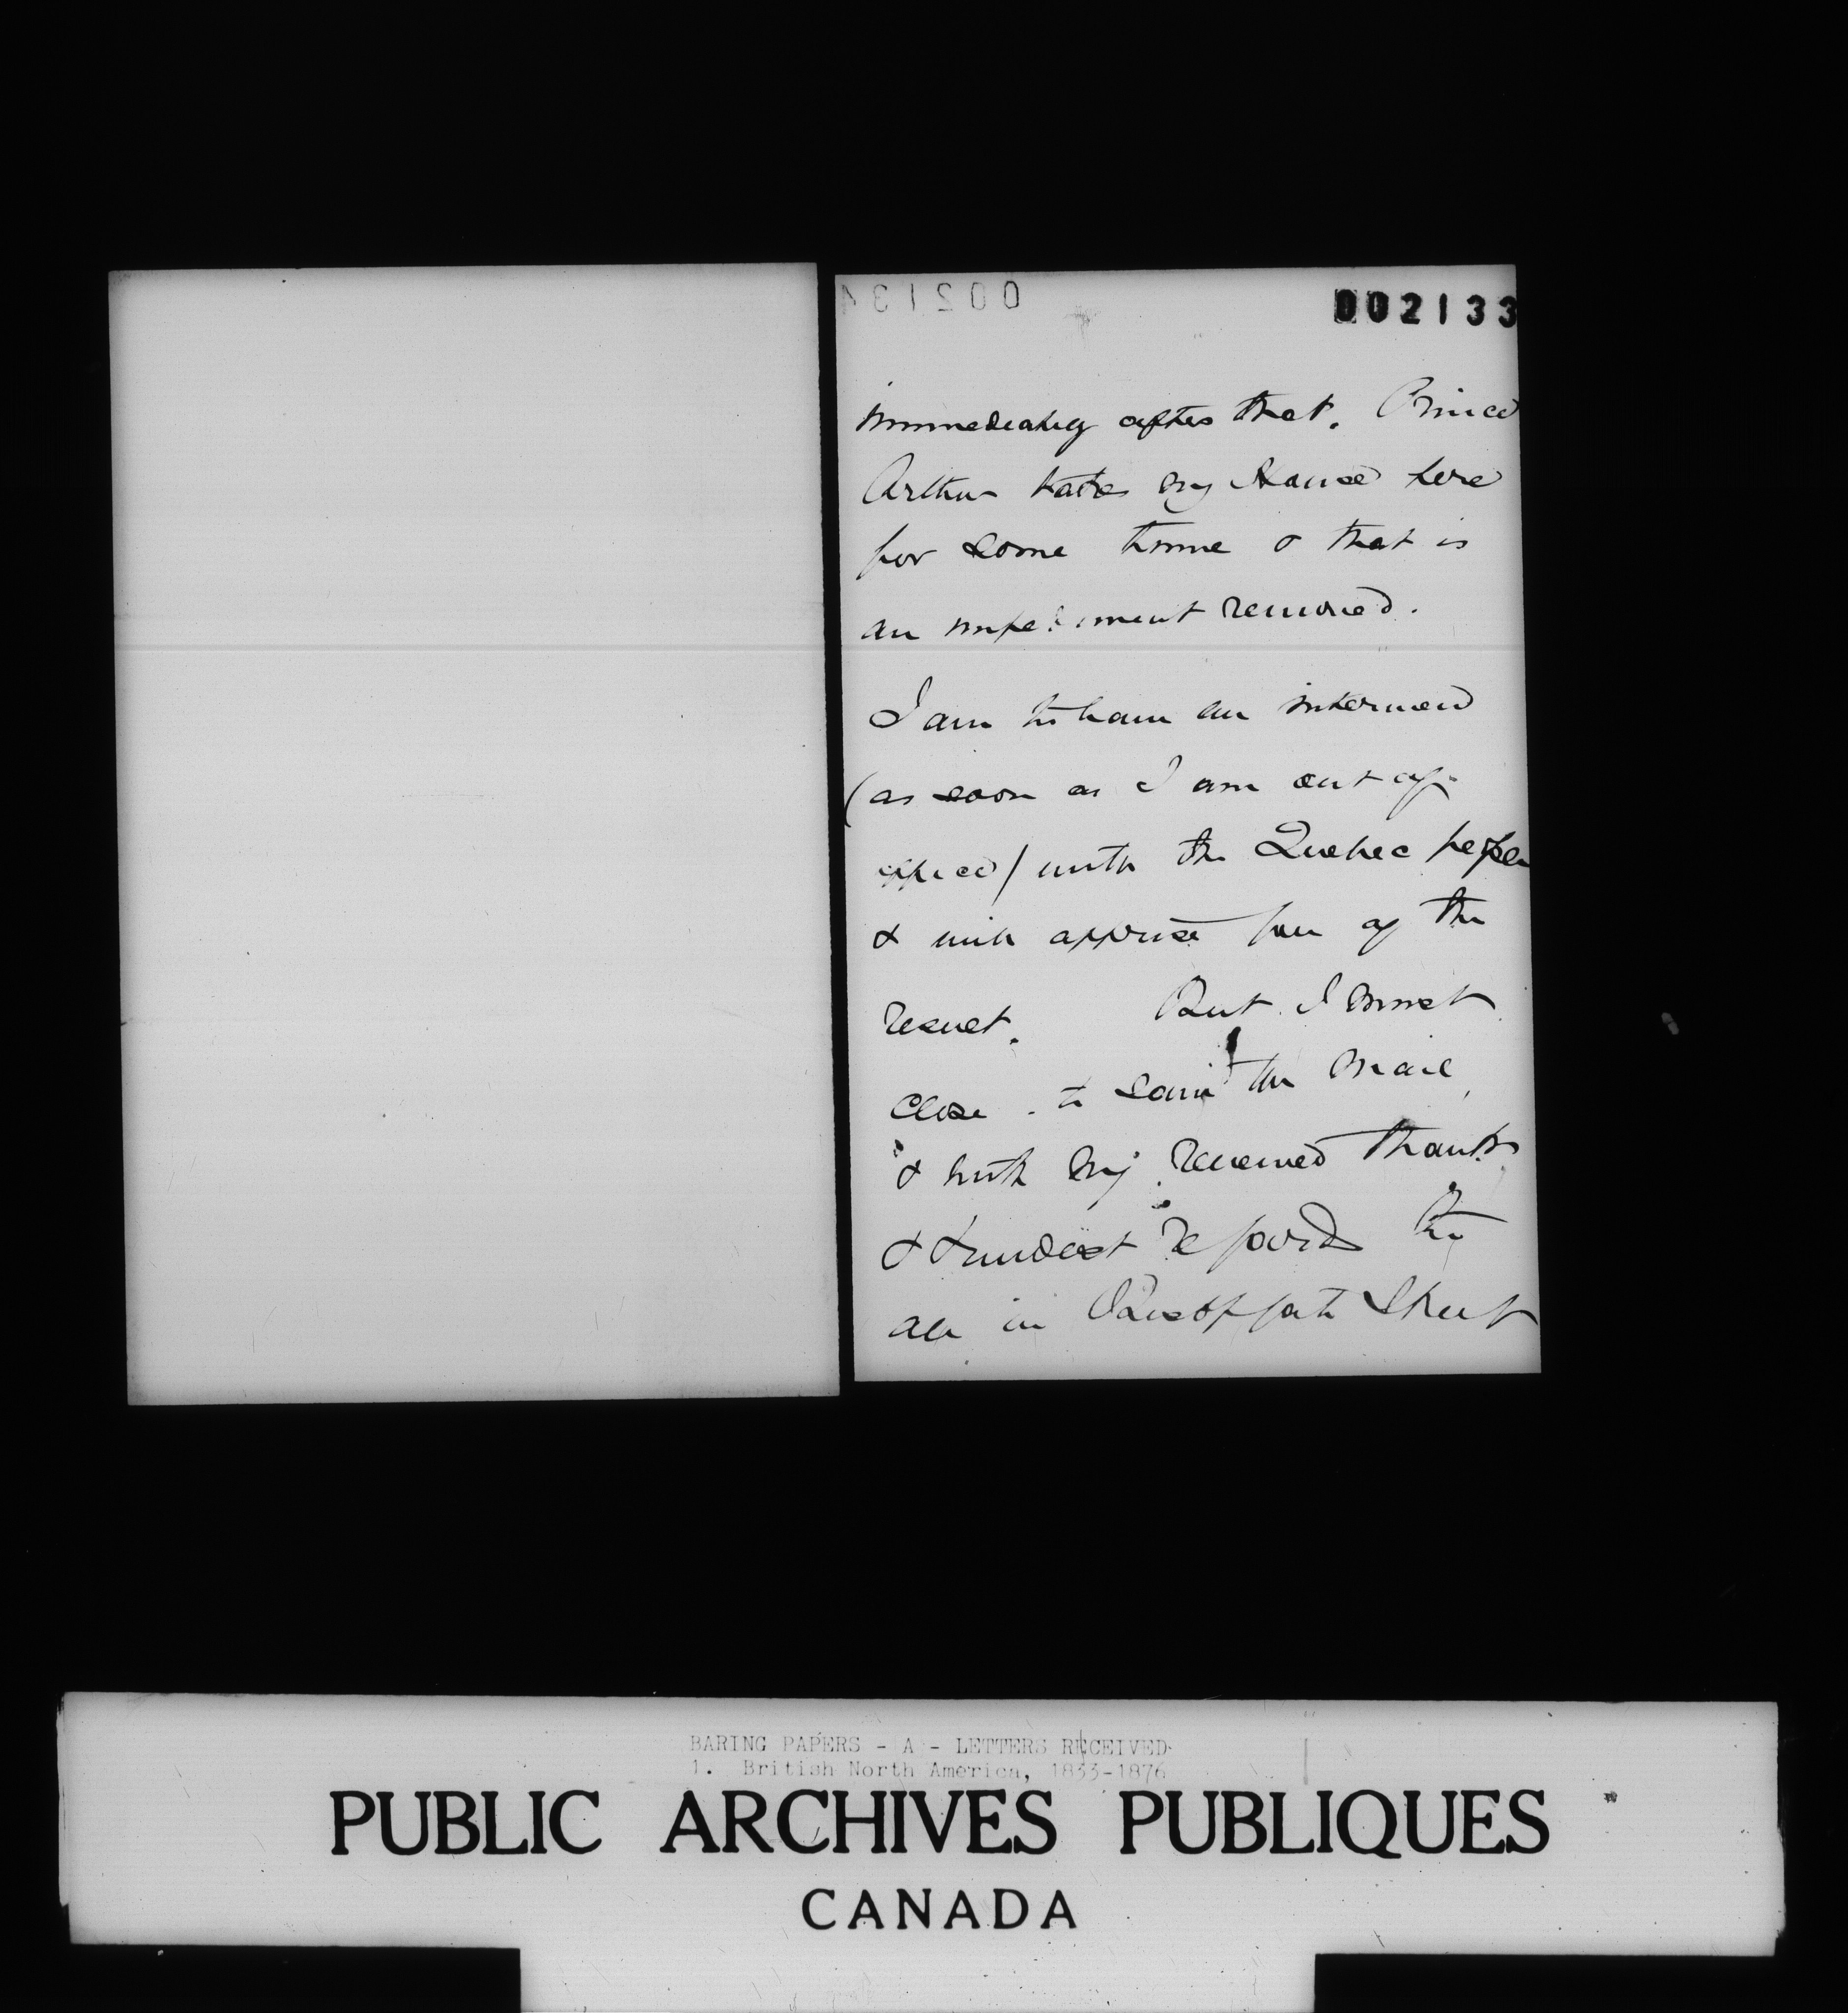 002133
immediately after that. Prince
Arthur takes my House here
for some time & that is
an impediment removed.
I am to have an interview
(as soon as I am out of
office) with the Quebec people
& will apprise you of the
result. But I must
close to save the mail,
& with my renewed thanks
& kindest regards to
all in Bishopsgate Street
BARING PAPERS - A - LETTERS RECEIVED
1. British North America, 1833-1876
PUBLIC ARCHIVES PUBLIQUES
CANADA